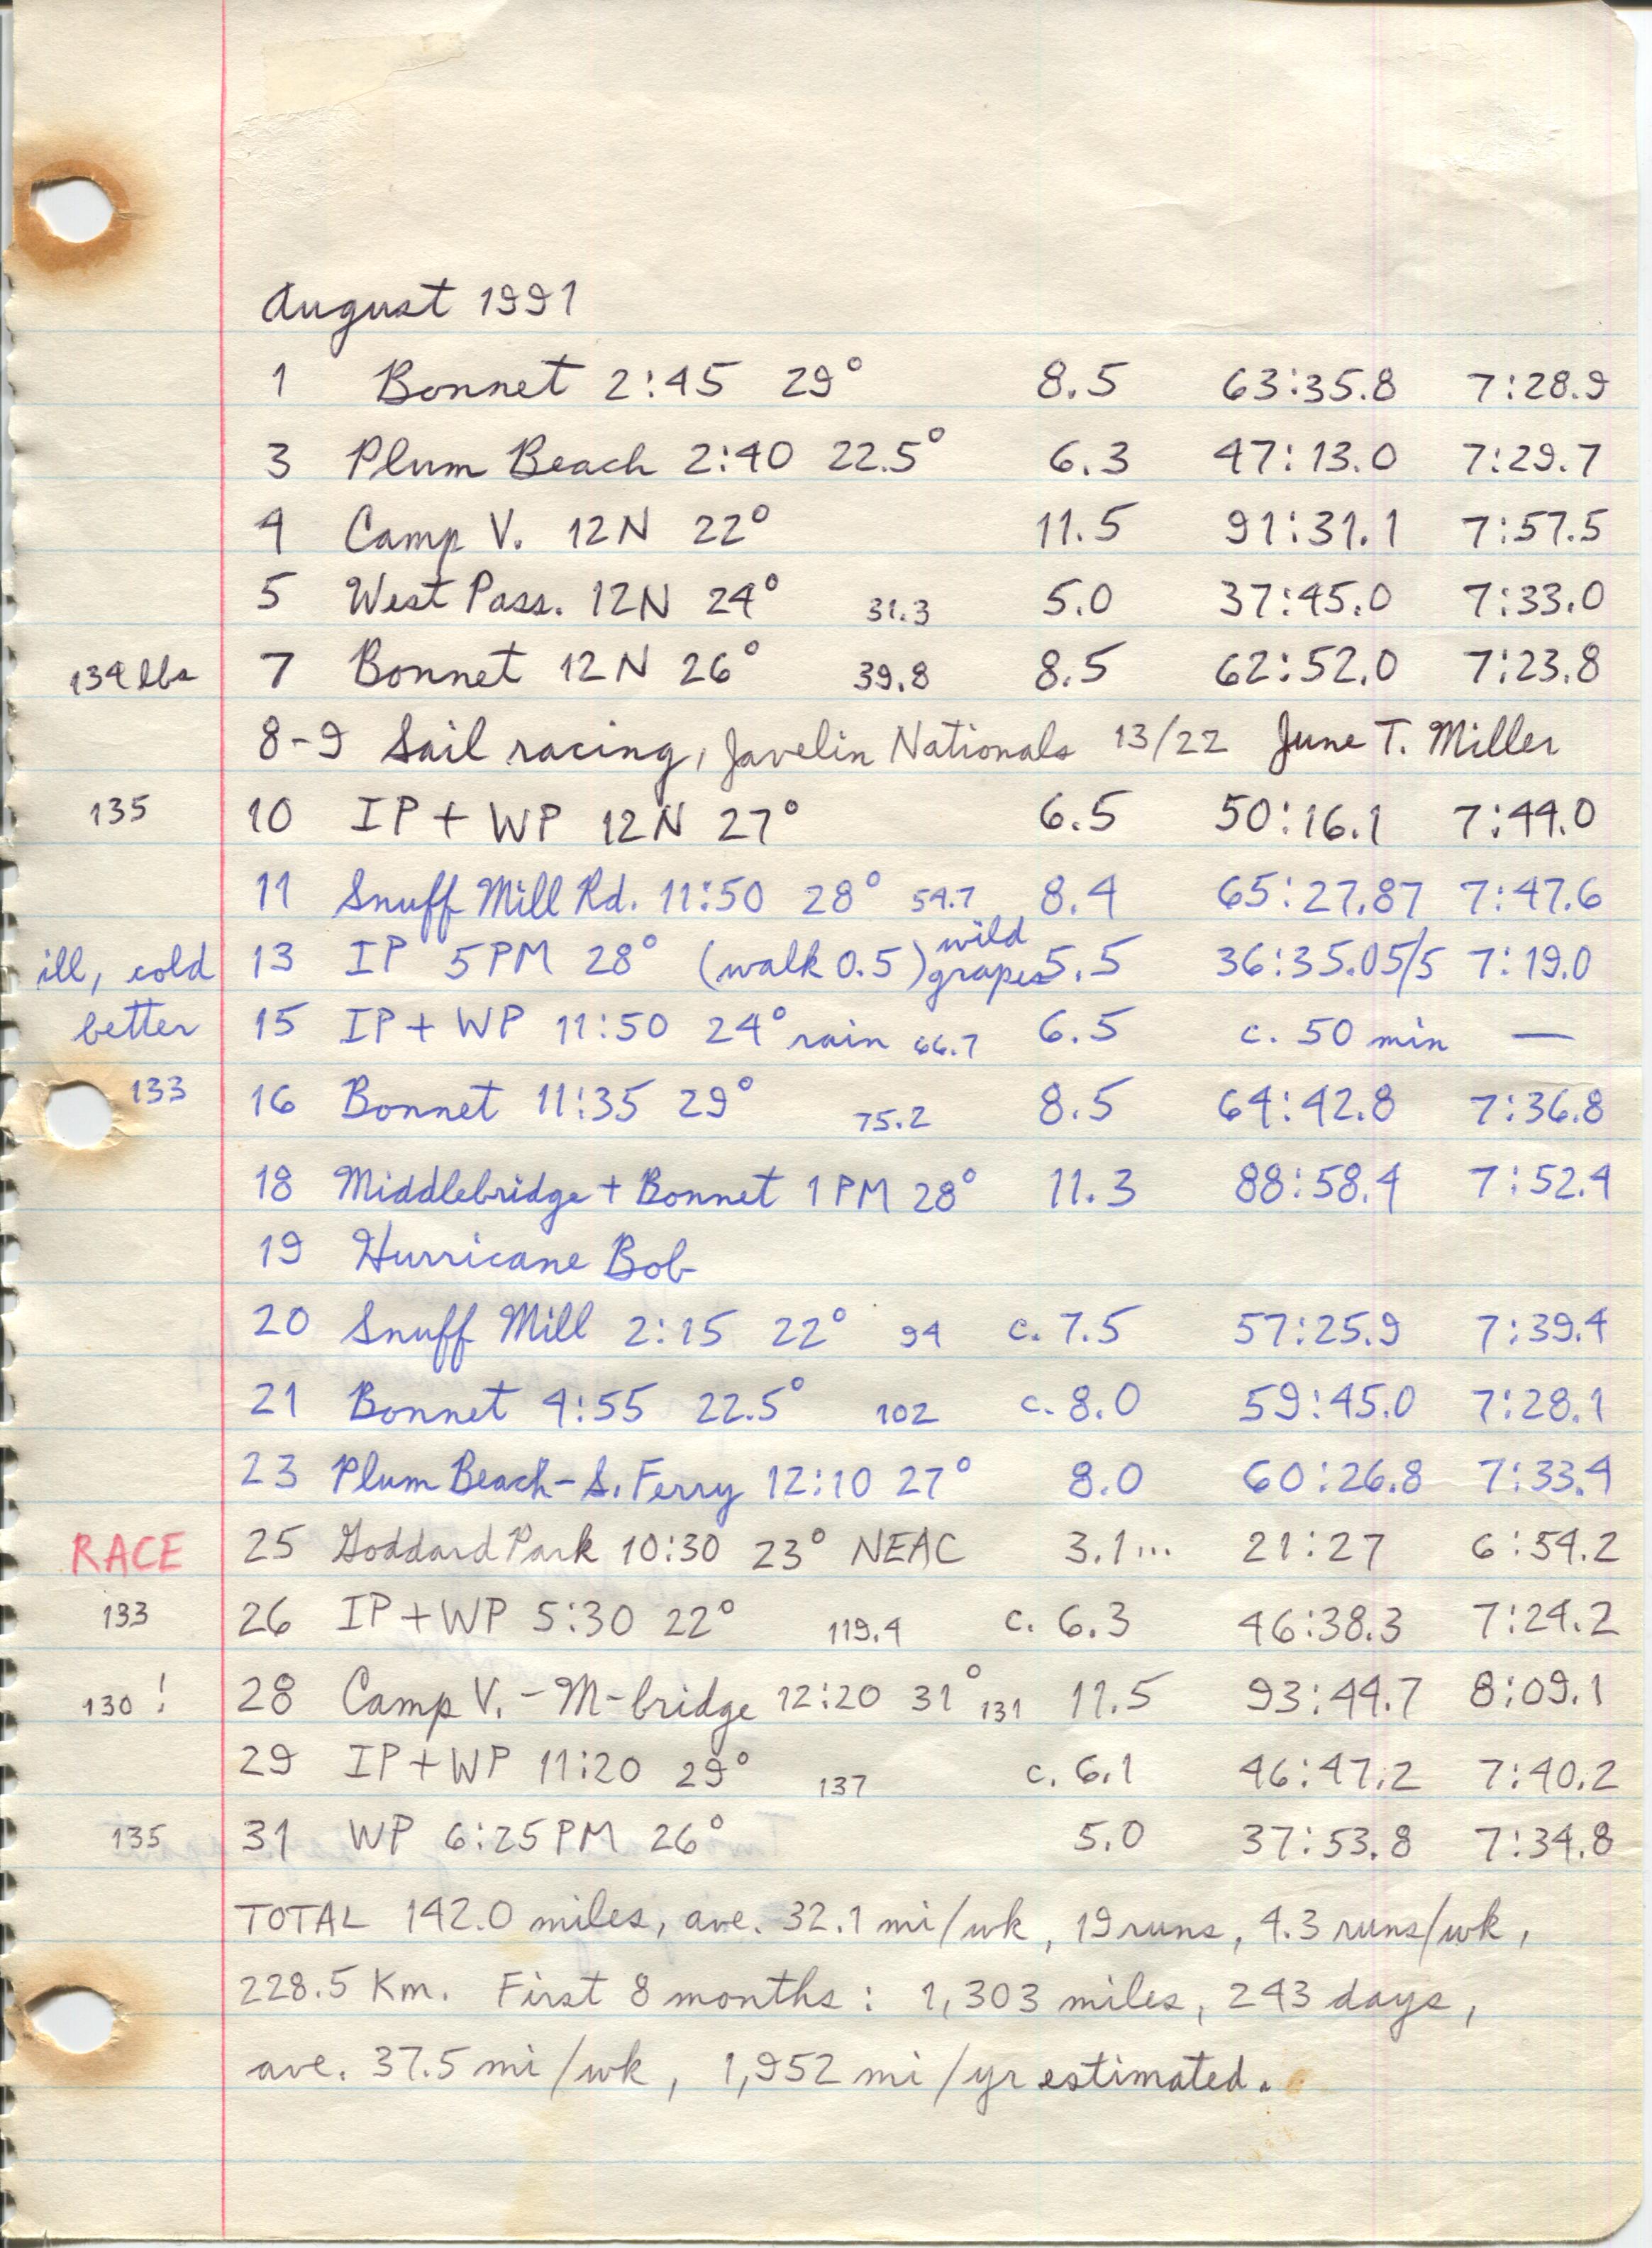 August 1991
1 Bonnet 2:45 29° 8.5 63:35.8 7:28.9
3 Plum Beach 2:40 22.5° 6.3 47:13.0 7:29.7
4 Camp V. 12N 22° 11.5 91:31.1 7:57.5
5 West Pass. 12N 24° 31.3 5.0 37:45.0 7:33.0
134 lbs 7 Bonnet 12N 26° 39.8 8.5 62:52.0 7:23.8
8-9 Sail racing, Javelin Nationals 13/22 June T. Miller
135 10 IP + WP 12N 27° 6.5 50:16.1 7:44.0
11 Snuff Mill Rd. 11:50 28° 54.7 8.4 65:27.87 7:47.6
ill, cold 13 IP 5PM 28° (walk 0.5) wild grapes 5.5 36:35.05/5 7:19.0
better 15 IP + WP 11:50 24° rain 66.7 6.5 c. 50 min —
133 16 Bonnet 11:35 29° 75.2 8.5 64:42.8 7:36.8
18 Middlebridge + Bonnet 1PM 28° 11.3 88:58.4 7:52.4
19 Hurricane Bob
20 Snuff Mill 2:15 22° 94 c. 7.5 57:25.9 7:39.4
21 Bonnet 4:55 22.5° 102 c. 8.0 59:45.0 7:28.1
23 Plum Beach - S. Ferry 12:10 27° 8.0 60:26.8 7:33.4
RACE 25 Goddard Park 10:30 23° NEAC 3.1... 21:27 6:54.2
133 26 IP + WP 5:30 22° 119.4 c. 6.3 46:38.3 7:24.2
130 ! 28 Camp V. - M-bridge 12:20 31° 131 11.5 93:44.7 8:09.1
29 IP + WP 11:20 29° 137 c. 6.1 46:47.2 7:40.2
135 31 WP 6:25PM 26° 5.0 37:53.8 7:34.8
TOTAL 142.0 miles, ave. 32.1 mi/wk, 19 runs, 4.3 runs/wk,
228.5 Km. First 8 months: 1,303 miles, 243 days,
ave. 37.5 mi/wk, 1,952 mi/yr estimated.